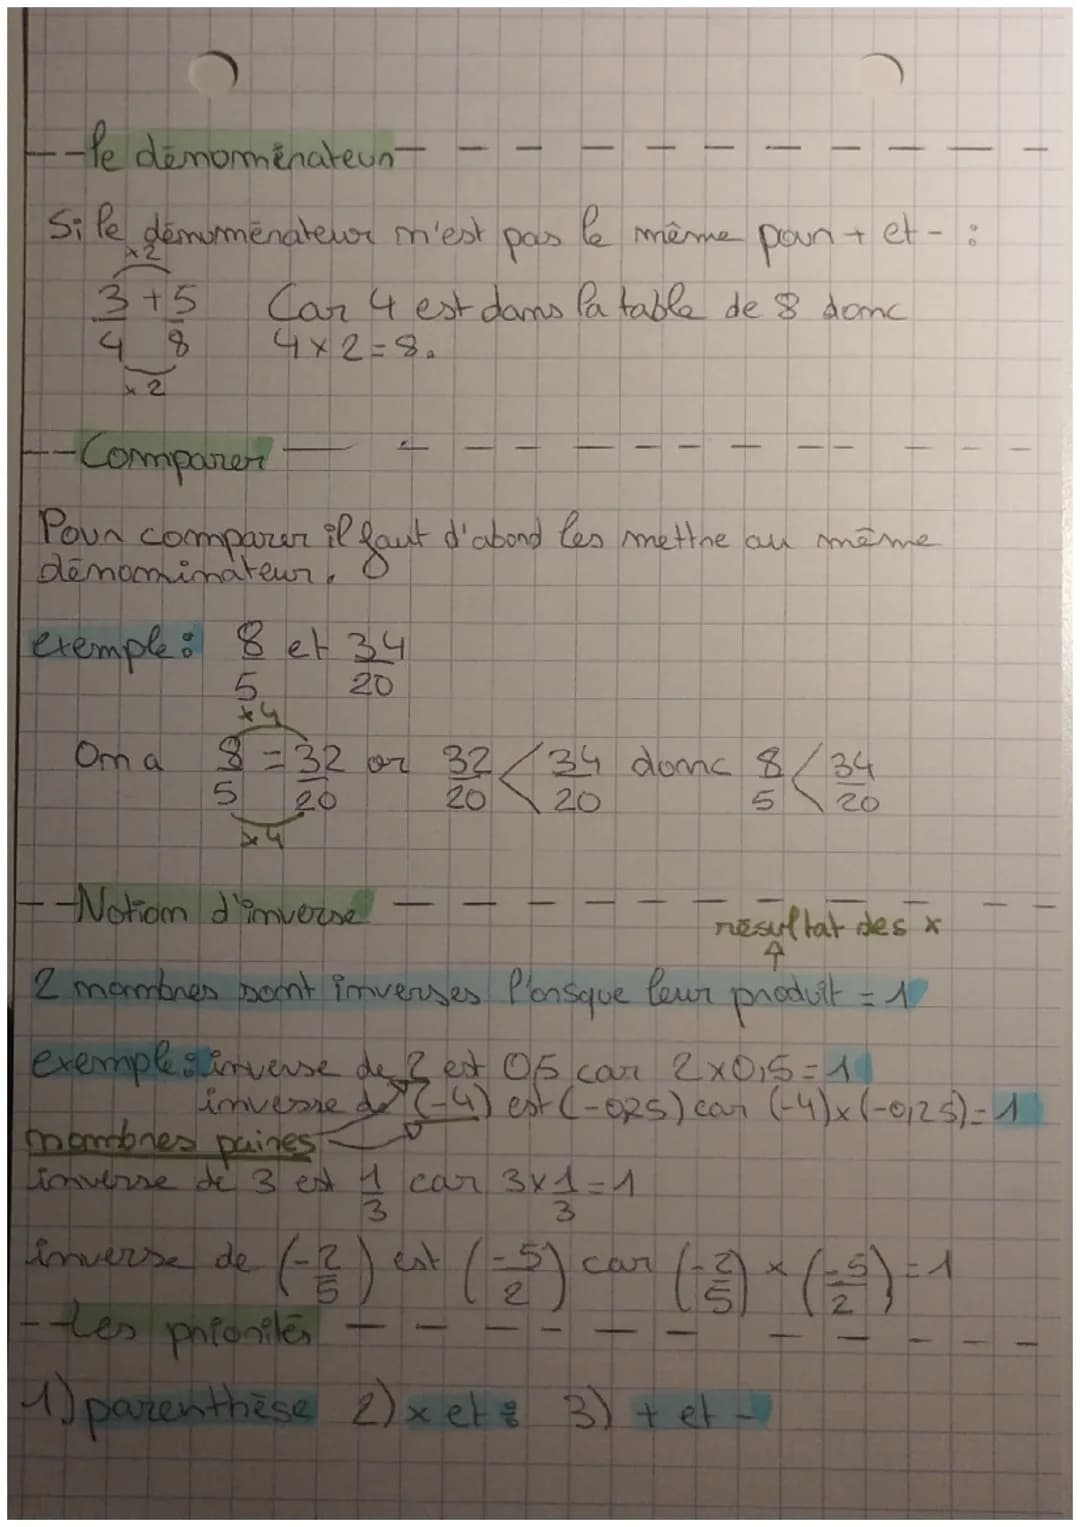 le dénominateur
Si le dénuménateur n'est pas le même pour + et - :
×2
3/4 + 5/8 Car 4 est dans la table de 8 donc
4×2=8.
×2
Comparer
Pour comparer il faut d'abord les mettre au même
dénominateur.
exemple : 8/5 et 34/20
×4
On a 8/5 = 32/20 or 32/20 < 34/20 donc 8/5 < 34/20
×4
Notion d'inverse
résultat des x
2 nombres sont inverses lorsque leur produit = 1
exemple : inverse de 2 est 0,5 car 2×0,5=1
inverse de (-4) est (-0,25) car (-4)×(-0,25)=1
nombres paires
inverse de 3 est 1/3 car 3×1/3=1
inverse de (-2/5) est (-5/2) car (-2/5) × (-5/2) = 1
Les priorités
1) parenthèse 2) × et : 3) + et -